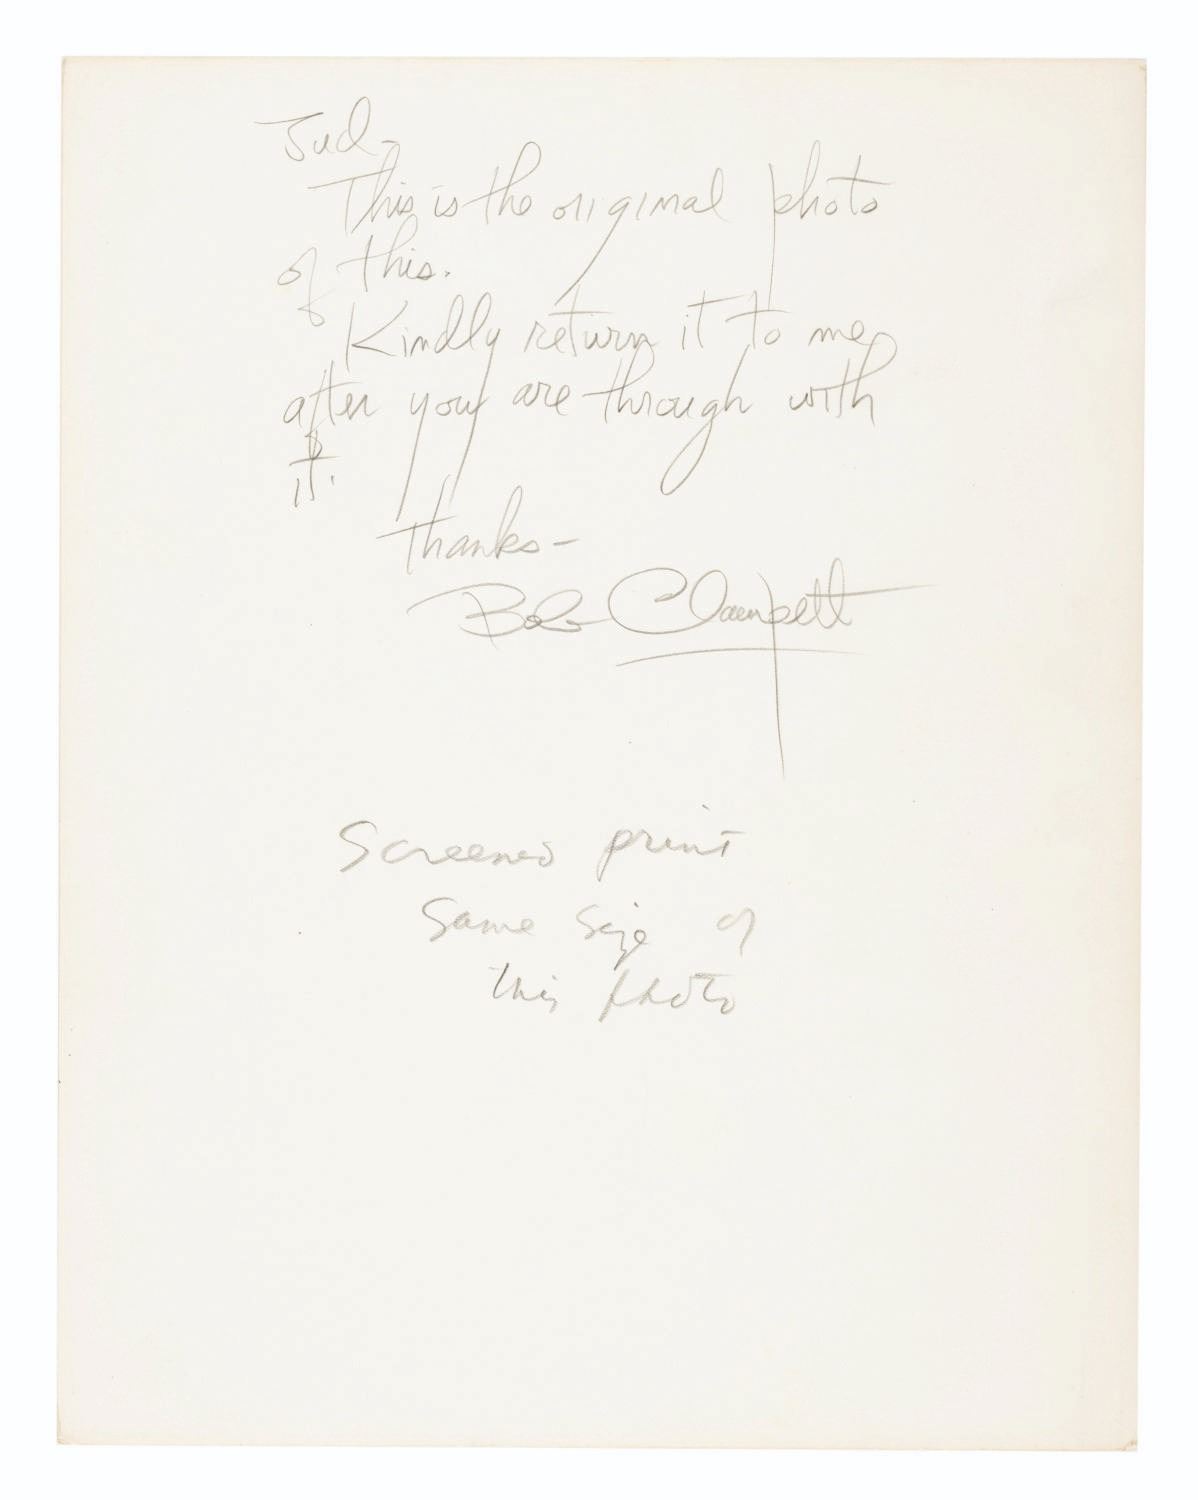 Jud-
This is the original photo
of this.
Kindly return it to me
after you are through with
it.
Thanks-
Bob Clampett
Screened print
same size of
this photo